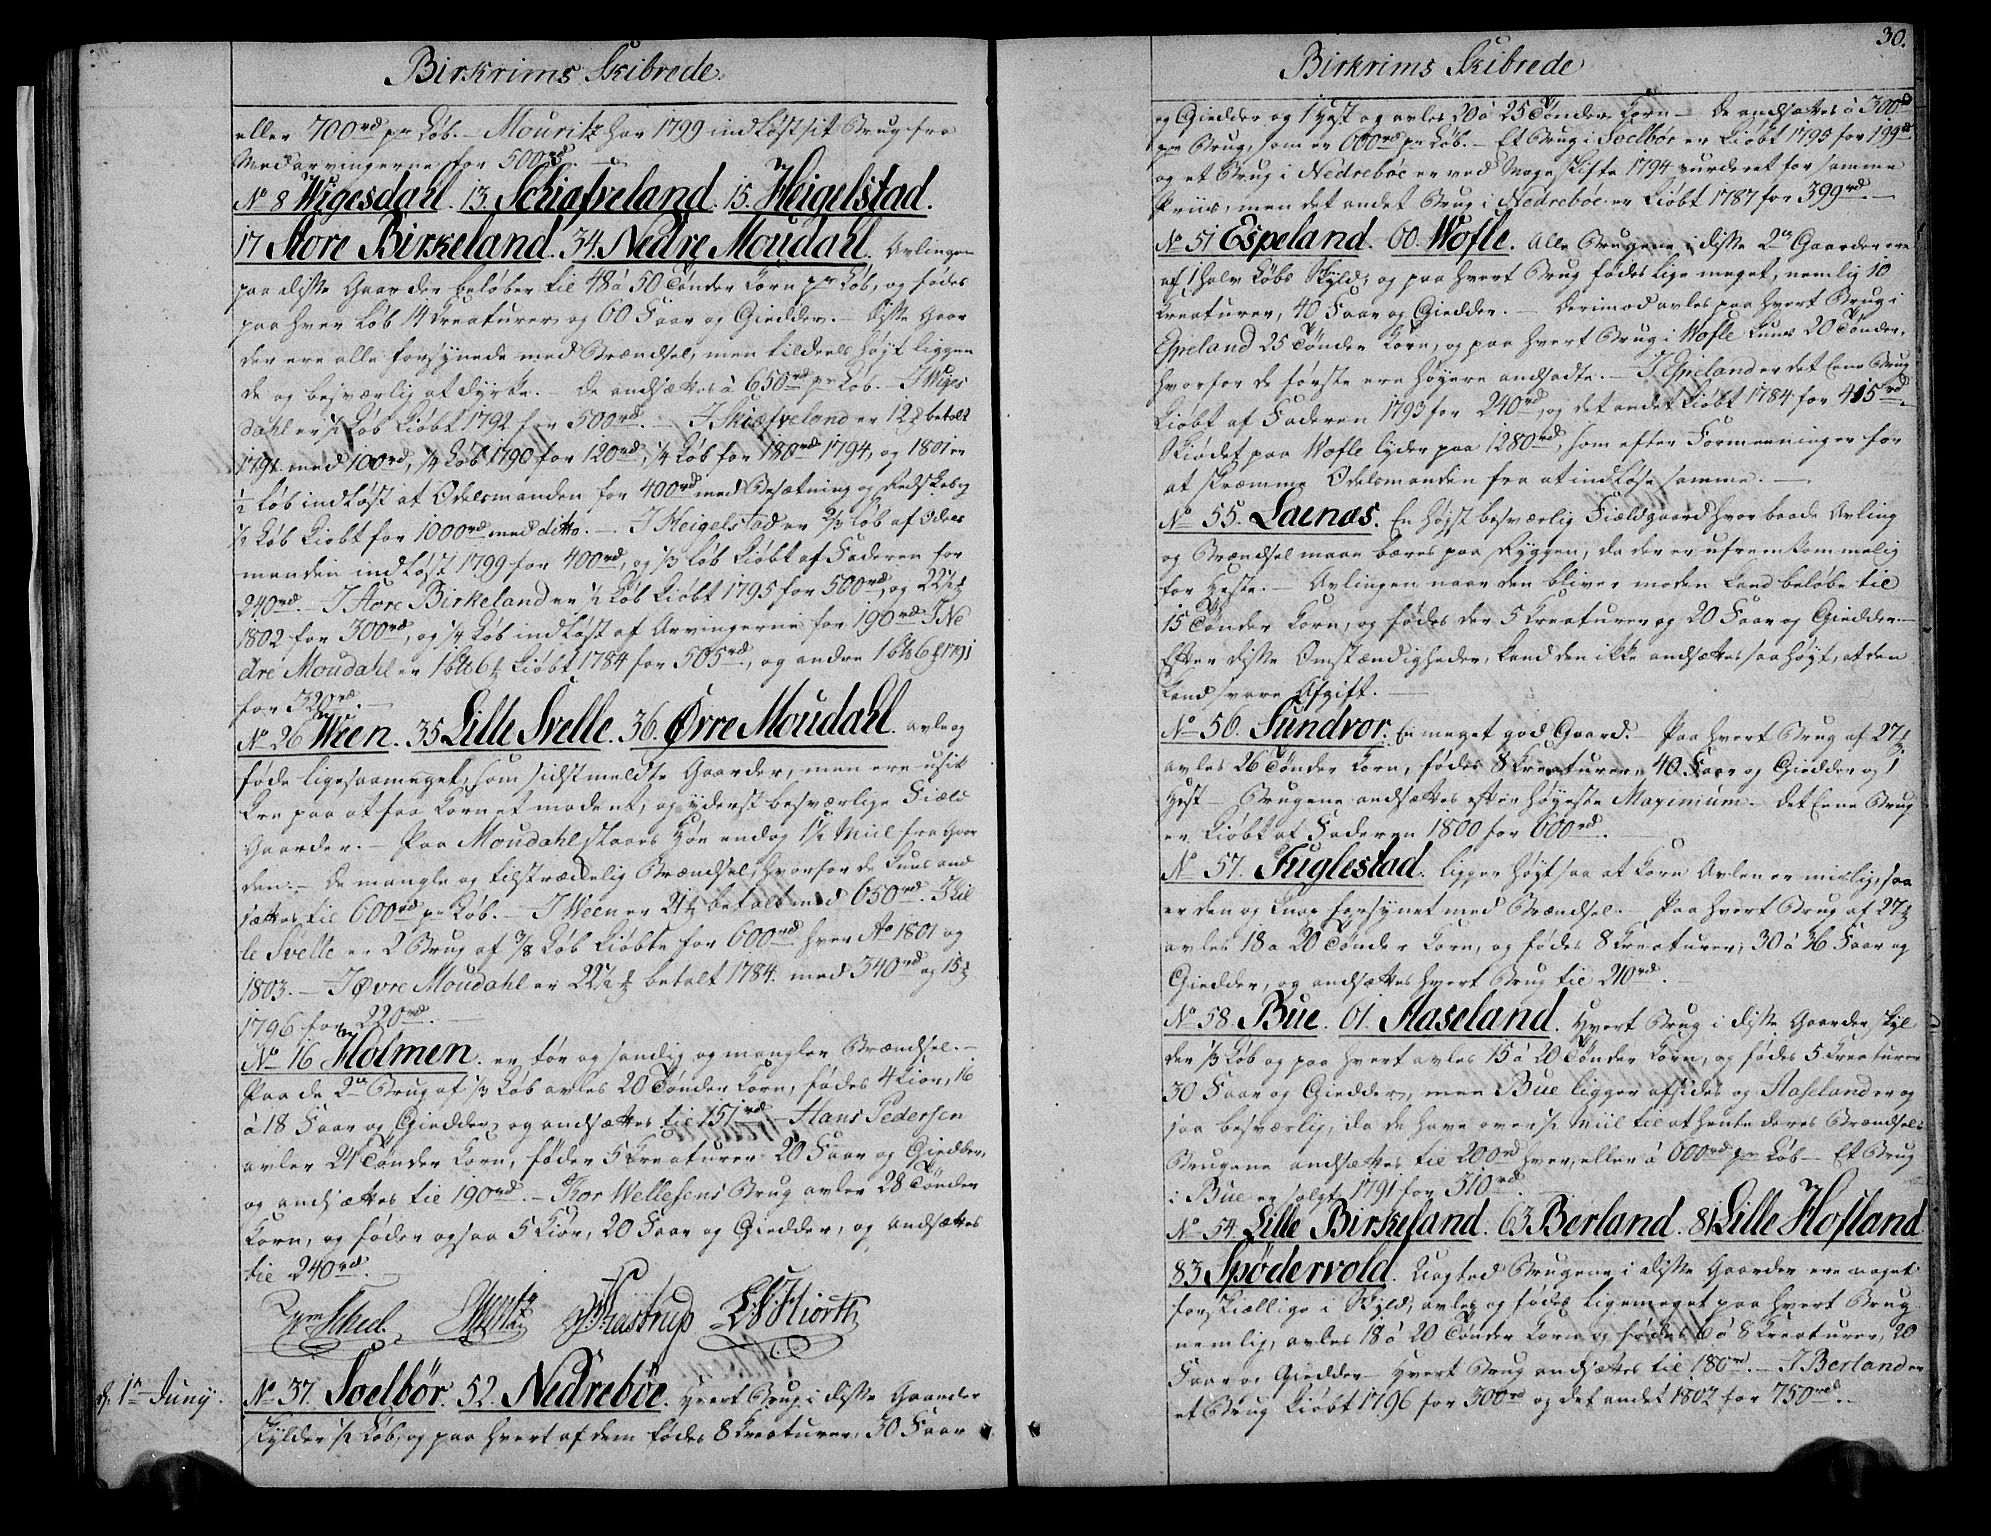 Birkrims Skibrede
eller 700rd pr Løb. – Mouritz har 1799 indløst sit Brug fra
Medarvingerne for 500rd. –
No 8 Wigesdahl. 13. Schiafveland. 15. Heigelstad.
17 Store Birkeland. 34. Nedre Moudahl. Avlingen
paa disse Gaarder beløber til 48 à 50 Tønder Korn pr Løb, og fødes
paa hver Løb 14 Creaturer og 60 Faar og Giedder. – Disse Gaar
der ere alle forsynede med Brændsel, men tildeels høyt liggen
de og besværlig at dyrke. – De andsættes à 650rd pr Løb. – I Wiges
dahl er ½ Løb kiøbt 1792 for 500rd. – I Skiæfveland er 12 betalt
1791. med 100rd, ¼ Løb 1790 for 120rd, ¼ Løb for 180rd 1794, og 1801 er
½ Løb indløst af Odelsmanden for 400rd med Besætning og Redskab og
½ Løb kiøbt for 1000rd med ditto. – I Heigelstad er 2/3 Løb af Odels
manden indløst 1799 for 400rd, og 1/3 Løb kiøbt af Faderen for
240rd. – I Store Birkeland er ½ Løb kiøbt 1795 for 500rd, og 22½
1802 for 300rd, og ¼ Løb indløst af Arvingerne for 190rd I Ne
dre Moudahl er 16 kiøbt 1784 for 505rd, og andre 16 1791
for 320rd. –
No 26 Ween. 35 Lille Svelle. 36. Øvre Moudahl. avle og
føde ligesaameget, som sidstmeldte Gaarder, men ere usik
kre paa at faa Kornet modent, og yderst besværlige Field
Gaarder. – Paa Moudahl staaer Høe endog 1½ Miil fra Gaar
den. – De mangle og tilstrækkelig Brændsel, hvorfor de kuns and
sættes til 600rd pr Løb. – I Ween er 21 betalt med 650rd. I Lil
le Svelle er 2 Brug af 3/8 Løb kiøbte for 600rd hver Ao 1801 og
1803. – I Øvre Moudahl er 22½ betalt 1784. med 340rd og 15
1796 for 220rd. –
No 16 Holmen. er tør og sandig og mangler Brændsel. –
Paa de 2de Brug af 1/3 Løb avles 20 Tønder Korn, fødes 4 Kiør, 16
à 18 Faar og Giedder og andsættes til 151rd – Hans Pedersen
avler 24 Tønder Korn, føder 5 Kreaturer 20 Faar og Giedder,
og andsættes til 190rd. – Thor Wellesens Brug avler 28 Tønder
Korn, og føder ogsaa 5 Kiør, 20 Faar og Giedder, og andsættes
til 240rd. –
Hiorth
d. 1te Juny.
No 37. Soelbør. 52. Nedrebøe. Hvert Brug i disse Gaarder
skylder ½ Løb, og paa hvert af dem fødes 8 Kreaturer, 30 Faar
30.
Birkrims Skibrede
og Giedder og 1 Hest og avles 20 à 25 Tønder Korn – De andsættes à 300rd
pr Brug, som er 600rd pr Løb. – Et Brug i Soelbør er kiøbt 1795 for 199rd
og et Brug i Nedrebøe er ved Mageskifte 1794 vurderet for samme
Priis, men det andet Brug i Nedrebøe er kiøbt 1787 for 399rd. –
No 51 Espeland. 60. Wofle. Alle Brugene i disse 2de Gaarder ere
af 1 halv Løbs Skyld, og paa hvert Brug fødes lige meget, nemlig 10
Kreaturer, 40 Faar og Giedder. – Derimod avles paa hvert Brug i
Espeland 25 Tønder Korn, og paa hvert Brug i Wofle kuns 20 Tønder,
hvorfor de første ere høyere andsadte. – I Espeland er det Eene Brug
kiøbt af Faderen 1793 for 240rd, og det andet kiøbt 1784 for 415rd. –
Skiødet paa Wofle lyder paa 1280rd, som efter Formeeninger for
at skræmme Odelsmanden fra at indløse samme. –
No 55. Laenæs. En høyst besværlig Fieldgaard hvor baade Avling
og Brændsel maae bæres paa Ryggen, da der er ufremkommelig
for Heste. – Avlingen naar den bliver moden kand beløbe til
15 Tønder Korn, og fødes der 5 Kreaturer og 20 Faar og Giedder. –
Efter disse Omstændigheder, kand den ikke andsættes saa høyt, at den
kand svare Afgift. –
No 56. Sundvor. En meget god Gaard. – Paa hvert Brug af 27
avles 26 Tønder Korn, fødes 8 Kreaturer, 40 Faar og Giedder og 1
Hest – Brugene andsættes efter høyeste Maximum. – Det Eene Brug
er kiøbt af Faderen 1800 for 600rd. –
No 57. Fuglestad. ligger høyt saa at Korn Avlen er mislig, saa
er den og knap forsynet med Brændsel. – Paa hvert Brug af 27
avles 18 a 20 Tønder Korn, og fødes 8 Kreaturer, 30 à 36 Faar og
Giedder, og andsættes hvert Brug til 210rd. –
No 58. Bue. 61. Aaseland. Hvert Brug i disse Gaarder skyl
der 1/3 Løb og paa hvert avles 15 à 20 Tønder Korn, og fødes 5 Kreaturer
30 Faar og Giedder, men Bue ligger afsides og Aaseland er og
saa besværlig, da de have over ½ Miil til at hente deres Brændsel.
Brugene andsættes til 200rd hver, eller à 600rd pr Løb – Et Brug
i Bue er solgt 1791 for 510rd. –
No 54. Lille Birkeland. 63 Berland. 81 Lille Hofland
83 Spødervold. Uagted Brugene i disse Gaarder ere noget
forskiællige i Skyld, avles og fødes ligemeget paa hvert Brug
nemlig, avles 18 à 20 Tønder Korn og fødes 6 à 8 Kreaturer, 20
Faar og Giedder – Hvert Brug andsættes til 180rd. – I Berland er
et Brug kiøbt 1796 for 300rd og det andet 1802 for 750rd. –